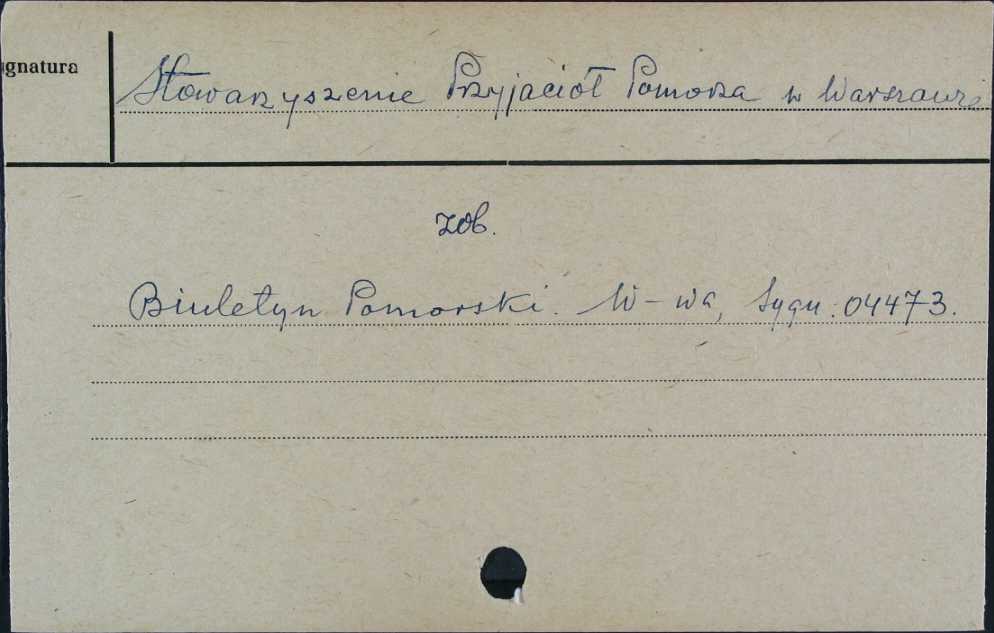 ignatura
Stowarzyszenie Przyjaciół Pomorza w Warszawie
zob.
Biuletyn Pomorski. W-wa, Sygn. 04473.